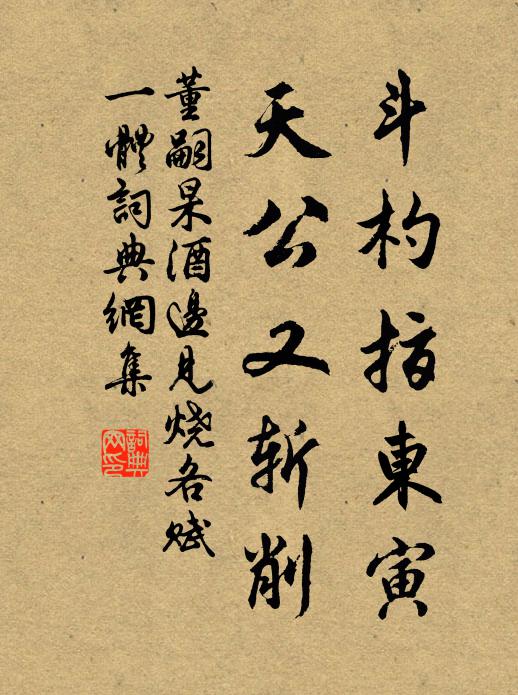 斗杓指東寅
天公又斬削
董嗣杲酒邊見燒各賦
一體詞典網集
詞典网印